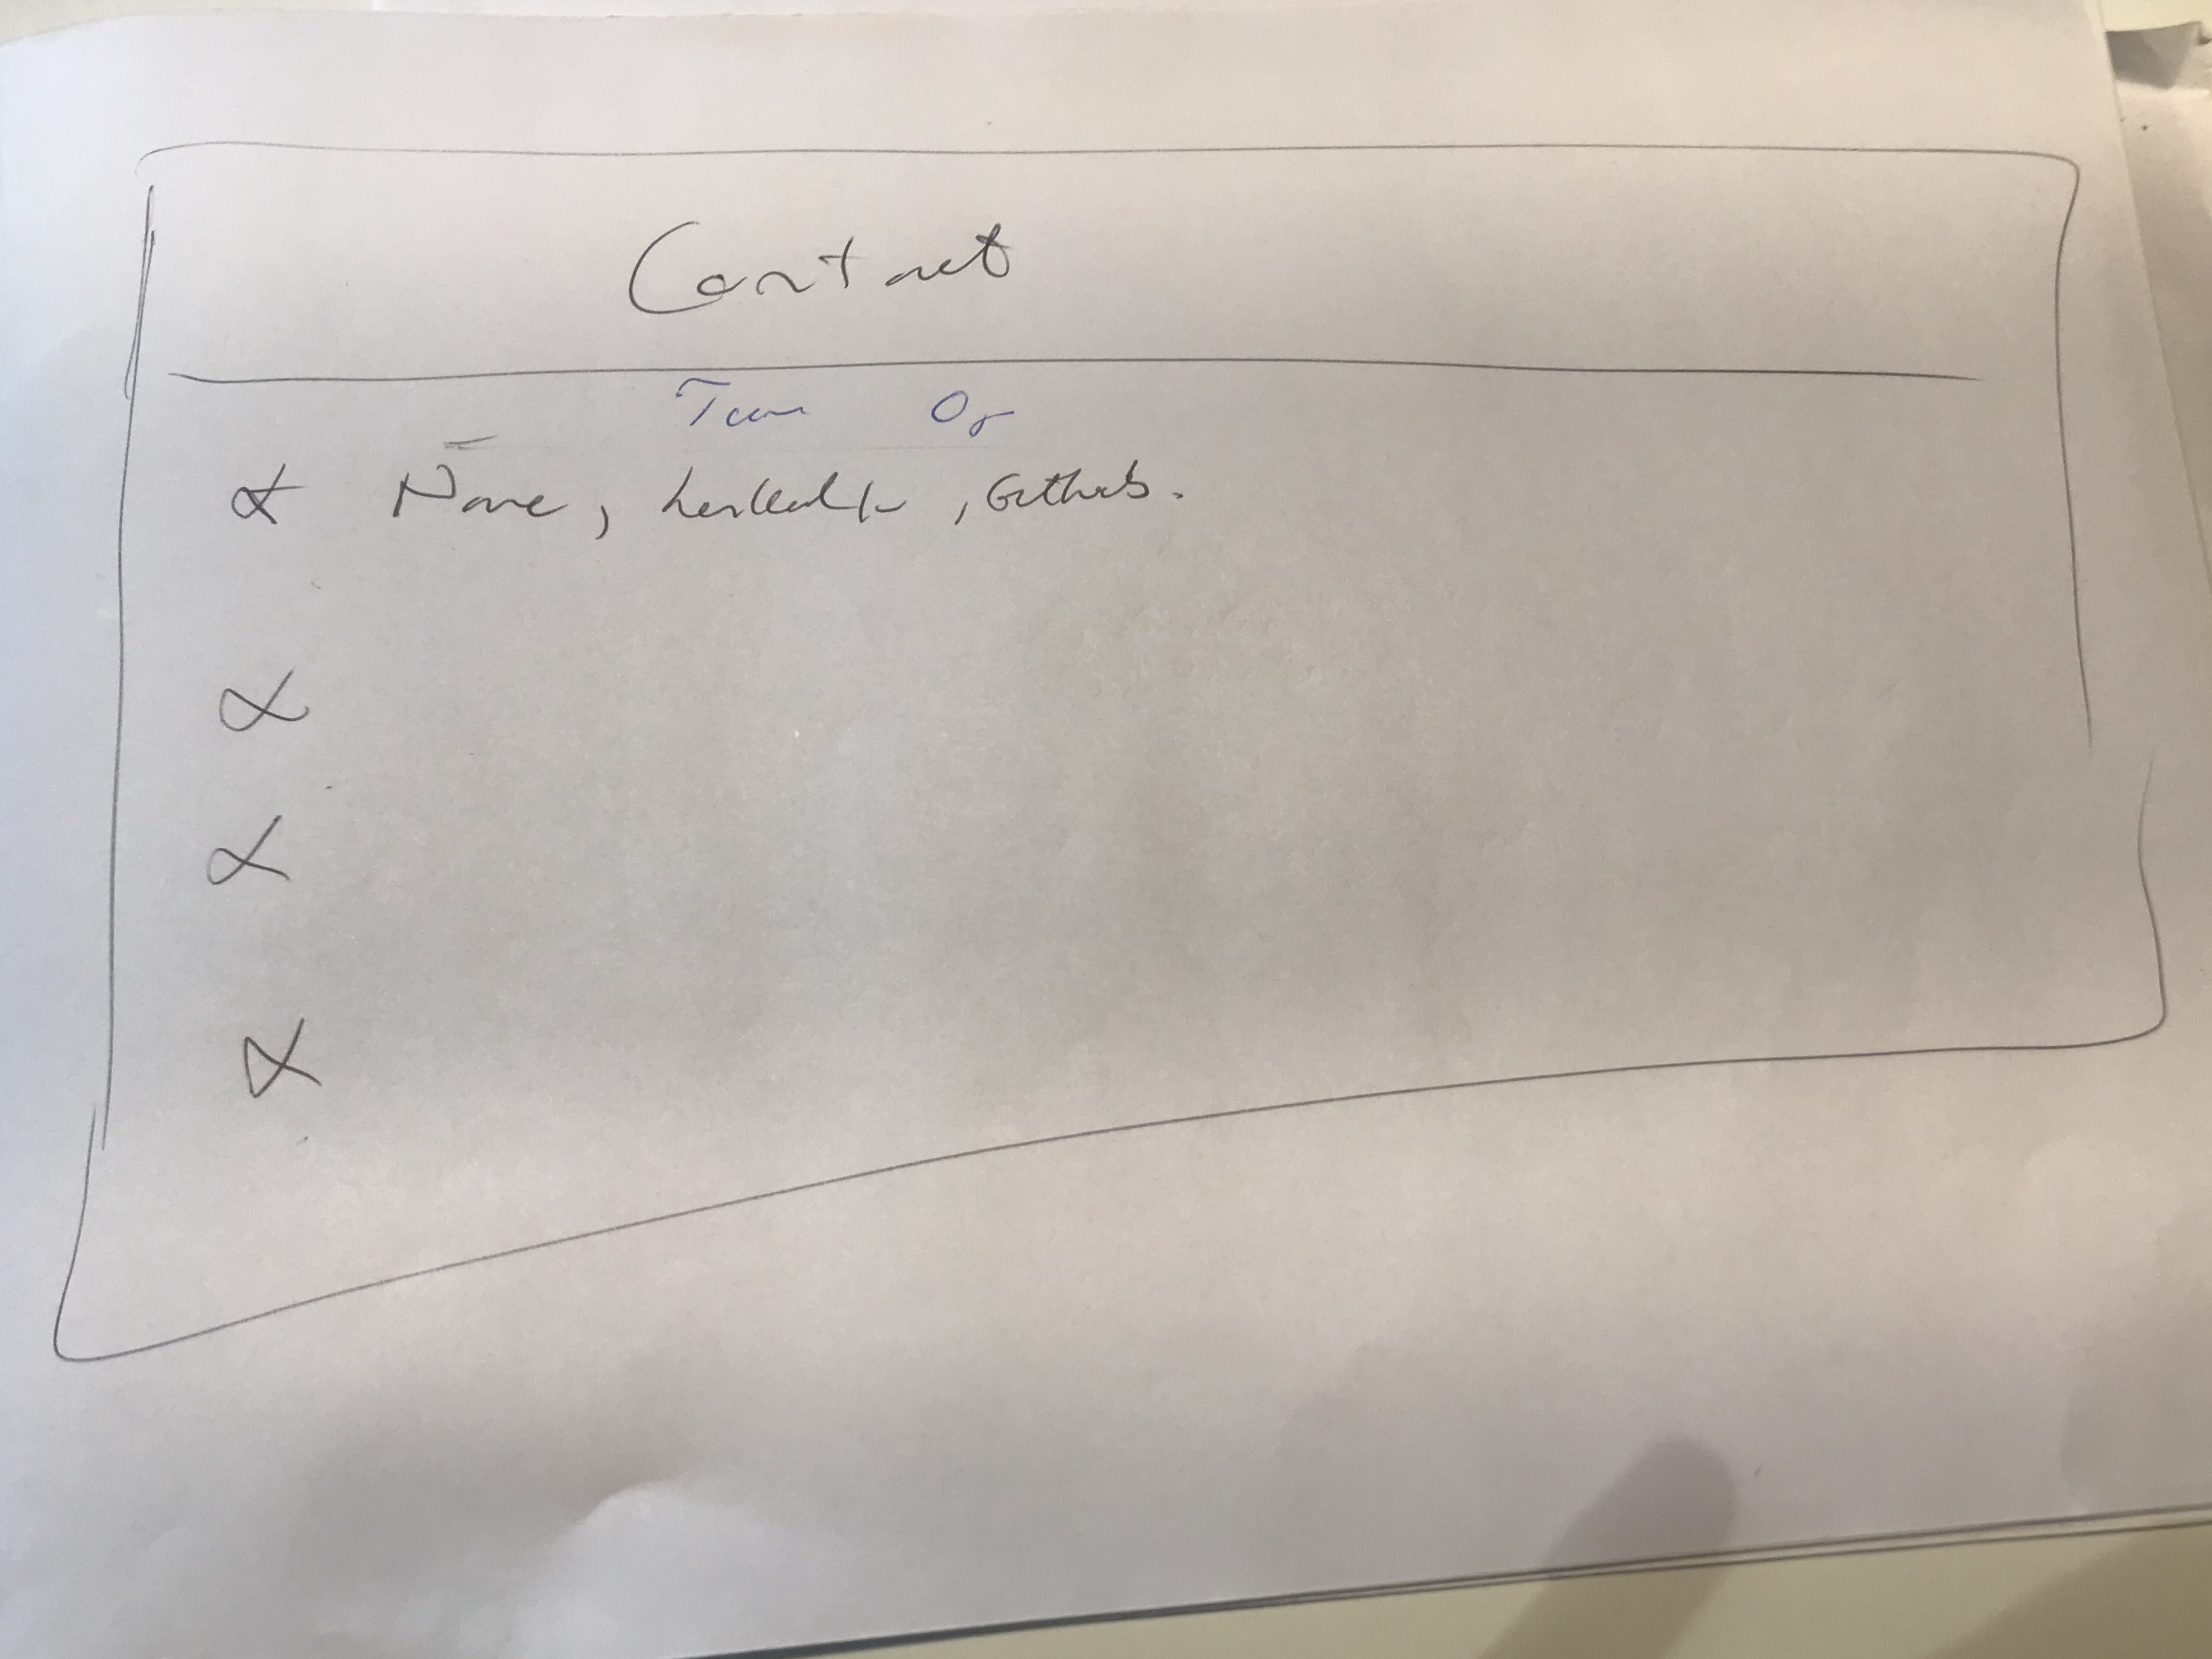 Contact
Team Or
Name, LinkedIn, Github.